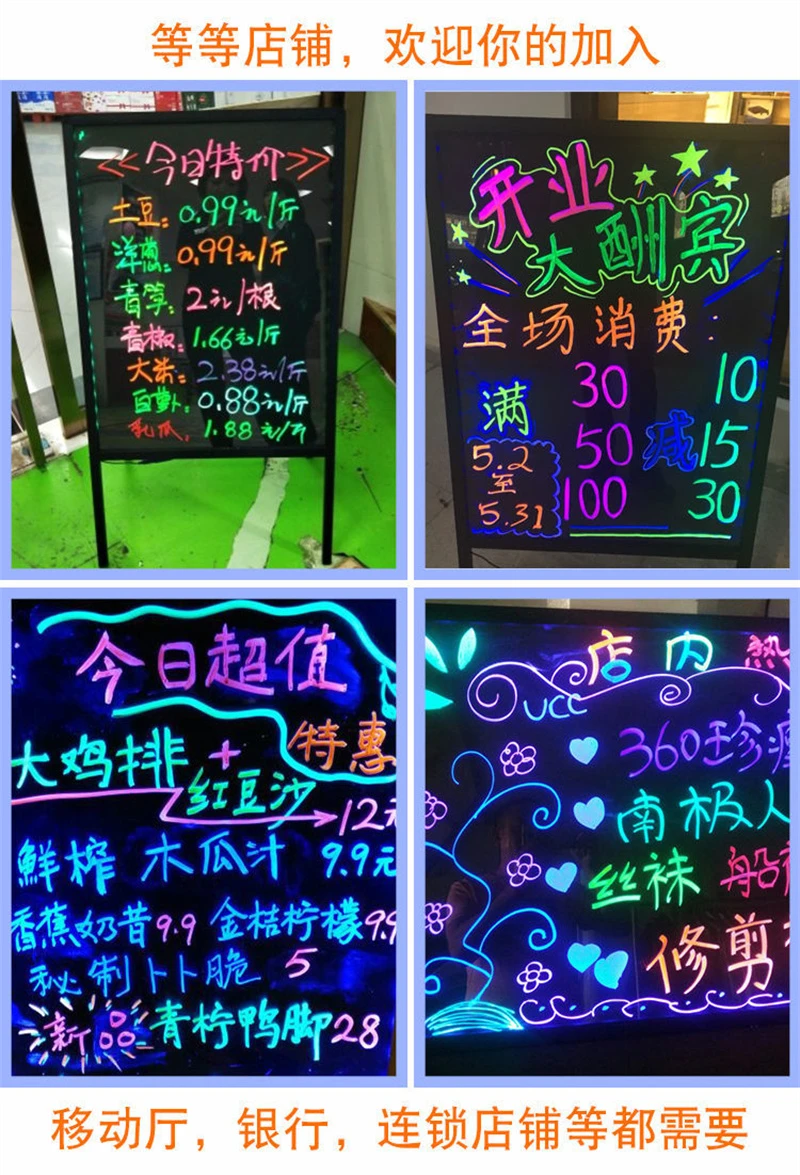 等等店铺，欢迎你的加入
<<今日特价>>
土豆：0.99元/斤
洋葱：0.99元/斤
青笋：2元/根
青椒：1.66元/斤
大米：2.38元/斤
白萝卜：0.88元/斤
乳瓜：1.88元/斤
开业
大酬宾
全场消费：
满 30 减 10
50 15
100 30
5.2
至
5.31
今日超值
特惠
大鸡排+
红豆沙
12元
鮮榨 木瓜汁 9.9元
香蕉奶昔9.9 金桔柠檬9.9
秘制卜卜脆 5
新品 青柠鸭脚28
店内热
UCC
360珍瘦
南极人
丝袜 船
修剪
移动厅，银行，连锁店铺等都需要